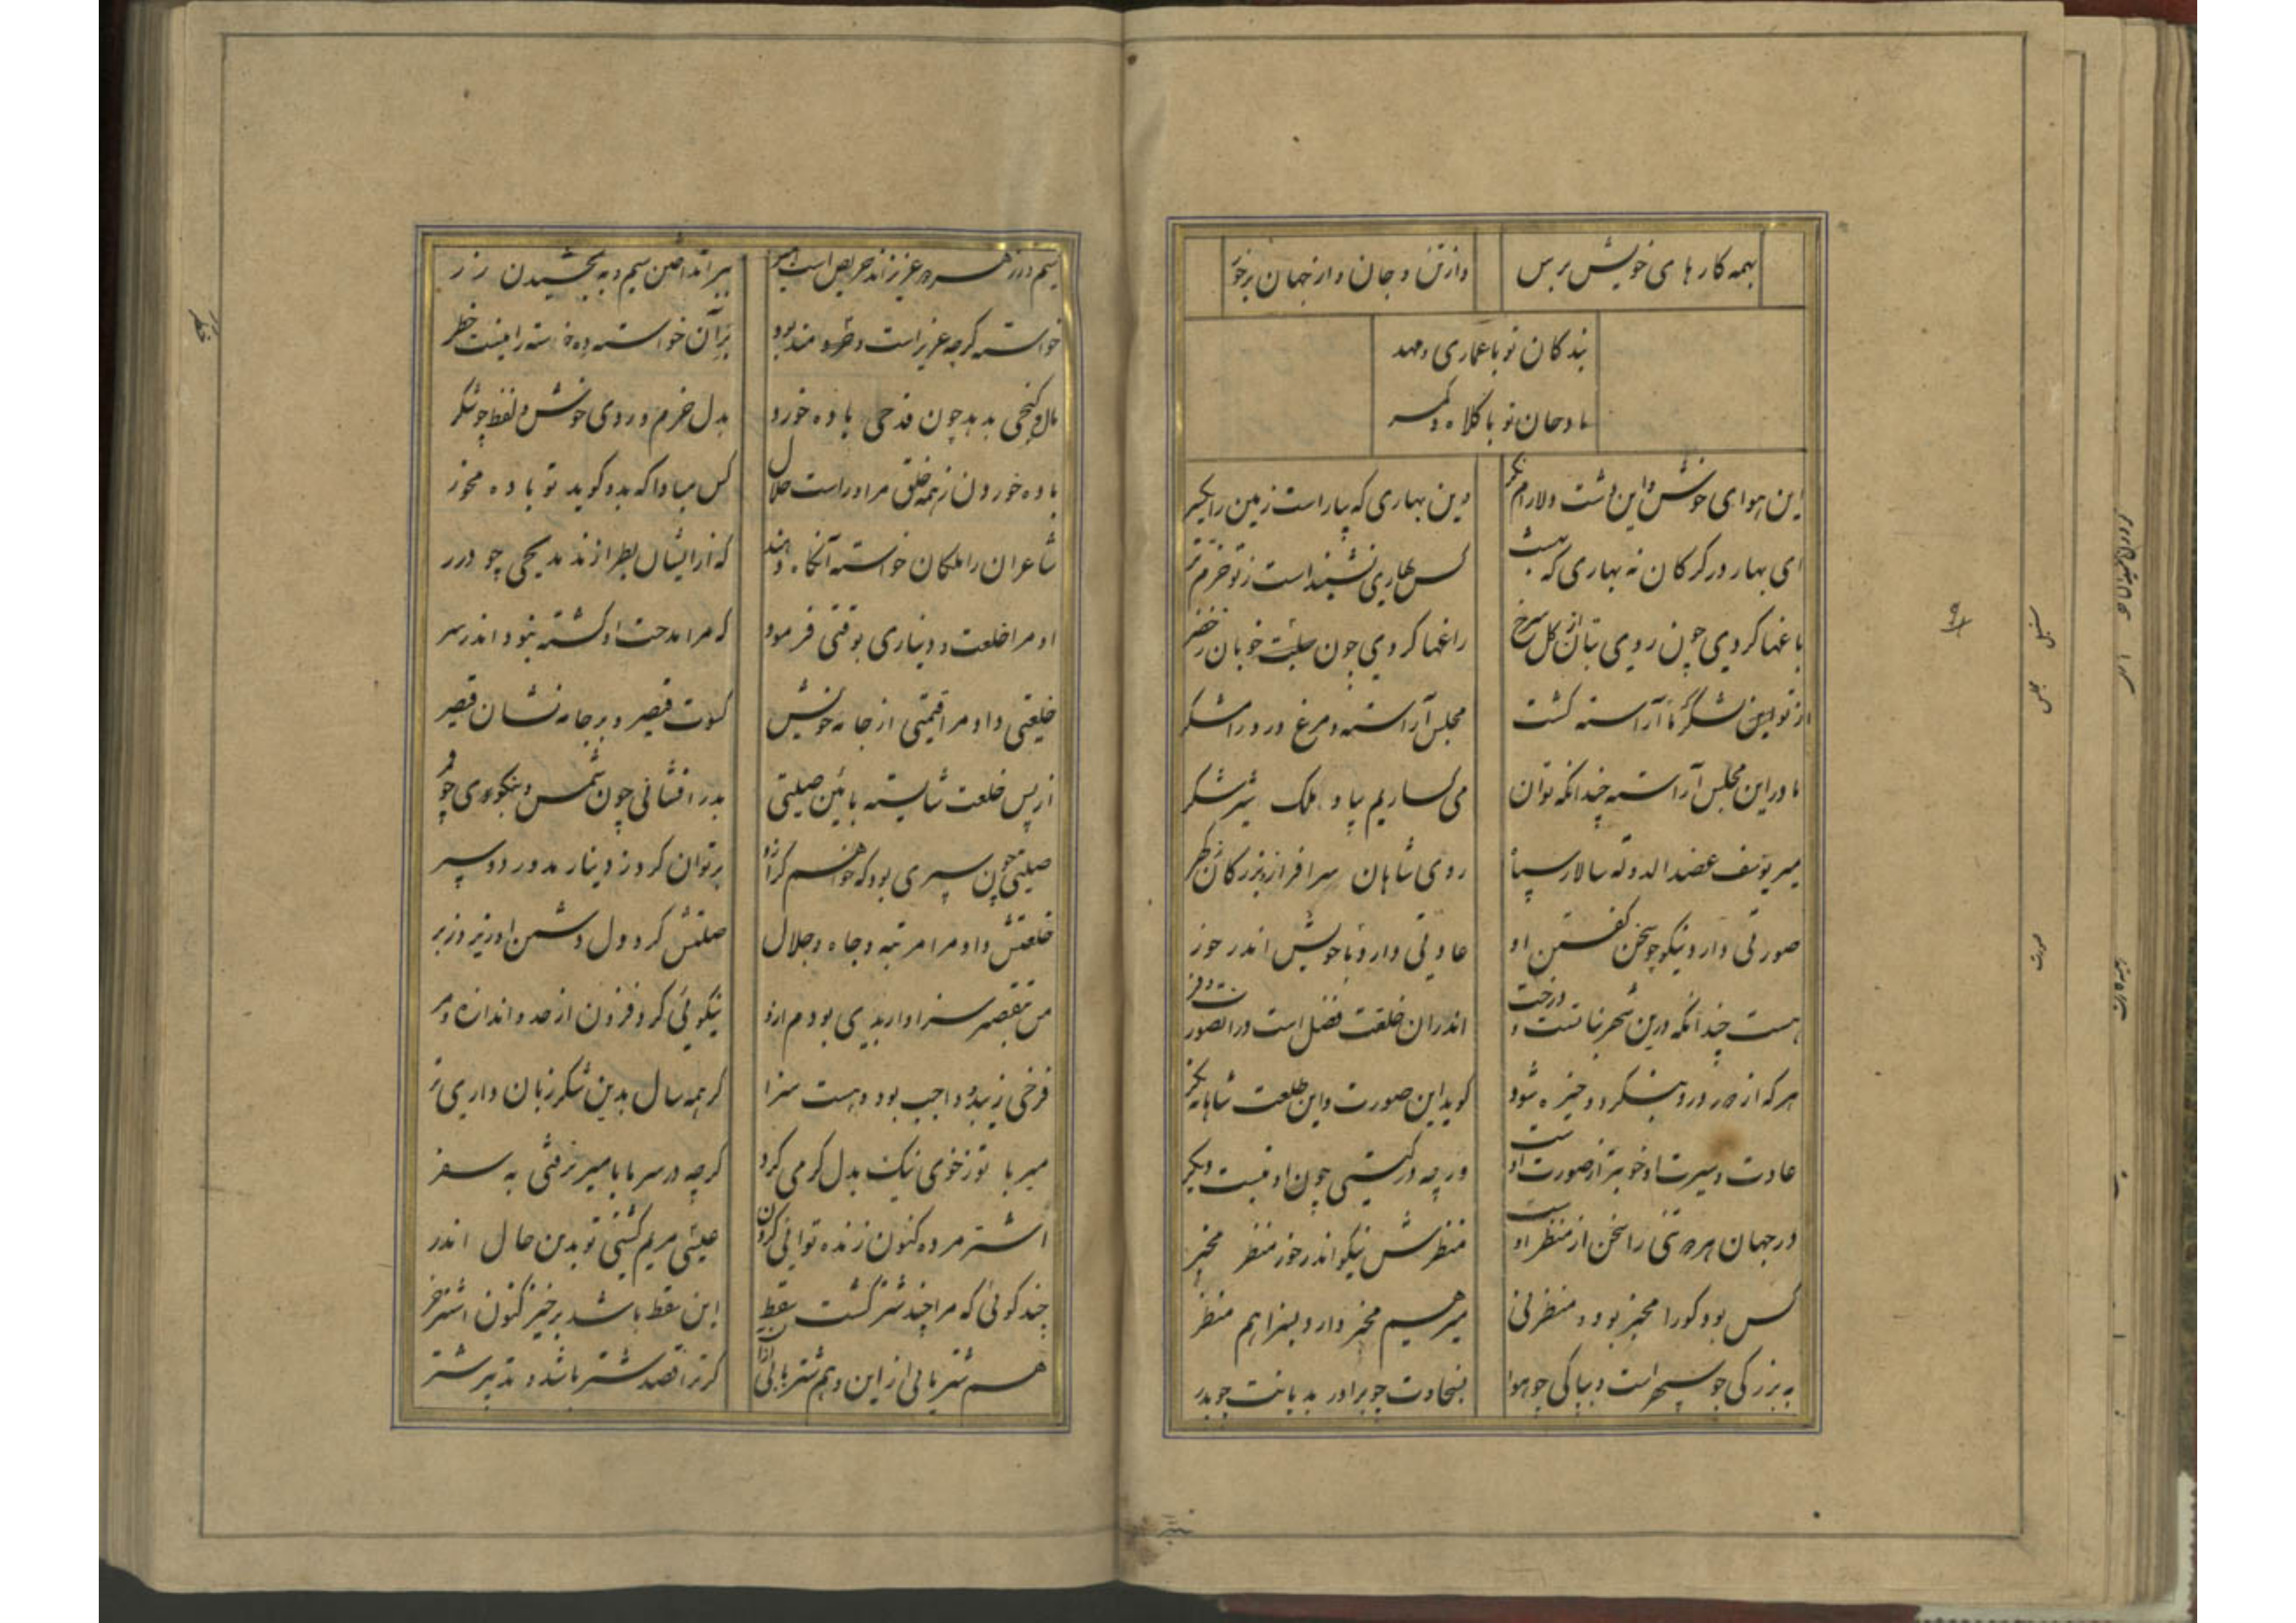 بهمه کارهای خویش برس وازتن و جان و از جهان برخور
بندگان تو با عماری و مهد
مادحان تو با کلاه و کمر
این هوای خوش و این دشت دلارام نگر وین بهاری که بیاراست زمین را یکسر
ای بهار در کرکان نه بهاری که بهشت کس بهاری نشنیداست ز تو خرم تر
باغها کردی چون روی بتان از گل سرخ راغها کردی چون سبلت خوبان ز خضر
از تو این آراسته گشت مجلس آراسته و مرغ در و رامشگر
ما در این مجلس آراسته چندانکه توان می گساریم بیاد ملک شیر شکر
میر یوسف عضد الدوله سالار سپاه روی شاهان سرافراز و بزرگان گهر
صورتی دارد نیکو چو سخن گفتن او عادتی دارد با خویش اندر خور
هست چندانکه درین شهر نباتست و درخت اندران خلقت فضل است و در آن صور
هر که از در درو بنگرد و خیره شود گوید این صورت و این طلعت شاهانه نگر
عادت و سیرت او خوبتر از صورت اوست ورچه در گیتی چون او نیست دیگر
در جهان هر تنی را سخن از منظر اوست منظرش نیکو اندر خور منظر مخبر
کس بود کورا مخبر بود و منظر نی میر هم مخبر دارد بسزا هم منظر
به بزرگی چو سپهر است و بپاکی چو هوا بسخاوت چو برادر بدیانت چو پدر
سیم و زر هر عزیزاند حریص است امیر بپراندختن سیم و به بخشیدن زر
خواسته گرچه عزیز است و خردمند بود بر آن خواسته ده خواسته را نیست خطر
مال و گنجی بدهد چون قدحی باده خورد بدل خرم و روی خوش و لفظ چو شکر
باده خوردن ز همه خلق مر او راست حلال کس مبادا که بدو گوید تو باده مخور
شاعران را ملکان خواسته آنگاه دهند که از ایشان بطرازند مدیحی چو درر
او مرا خلعت و دیناری بوقتی فرمود که مرا مدحت او گشته نبود اندر سر
خلعتی داد مرا قیمتی از جامه خویش کسوت قیصر و بر جامه نشان قیصر
از پس خلعت شایسته بآئین صلتی بدرافشانی چون شمس و بنیکوئی چو قمر
صلتی چون سپری بود که خواهم کرد از او بر توان کرد ز دینار مدور دو سپر
خلعتش داد مرا مرتبه و جاه و جلال صلتش کرد دل دشمن او زیر و زبر
من بتقصیر سزاوار بدی بودم ازو نیکوئی کرد فزون از حد و اندازه و مر
فرخی زیبد و واجب بود و هست سزا گر همه سال بدین شکر زبان داری تر
میر با تو ز خوی نیک بدل گرمی کرد گرچه در سرما با میر نرفتی به سفر
اشتر مرده کنون زنده توانی کردن عیسی مریم گشتی تو بدین حال اندر
چند گوئی که مرا چند شتر گشت سقط این سقط باشد برخیز کنون اشتر خر
هم شتریابی از این و هم شتربانی گر ترا قصد شتر باشد و تدبیر شتر